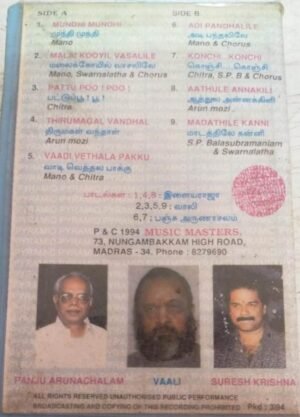 SIDE A
1. MUNDHI MUNDHI
முந்தி முந்தி
Mano
2. MALAI KOOYIL VASALILE
மலைகோயில் வாசலிலே
Mano, Swarnalatha & Chorus
3. PATTU POO ! POO !
பட்டுப்பூ ! பூ !
Chitra
4. THIRUMAGAL VANDHAL
திருமகள் வந்தாள்
Arun mozi
5. VAADI VETHALA PAKKU
வாடி வெத்தல பாக்கு
Mano & Chitra
SIDE B
6. ADI PANDHALILE
அடி பந்தலிலே
Mano & Chorus
7. KONCHI.. KONCHI
கொஞ்சி... கொஞ்சி
Chitra, S.P. B & Chorus
8. AATHULE ANNAKILI
ஆத்துல அன்னக்கிளி
Arun mozi
9. MADATHILE KANNI
மாடத்திலே கன்னி
S.P. Balasubramaniam
& Swarnalatha
பாடல்கள் : 1,4,8 : இளையராஜா
2,3,5,9 : வாலி
6,7 : பஞ்சு அருணாசலம்
P & C 1994 MUSIC MASTERS
73, NUNGAMBAKKAM HIGH ROAD,
MADRAS - 34. Phone : 8279690
PANJU ARUNACHALAM VAALI SURESH KRISHNA
ALL RIGHTS RESERVED UNAUTHORISED PUBLIC PERFORMANCE
BROADCASTING AND COPYING OF THIS RECORDING PROHIBITED Pkd : 394